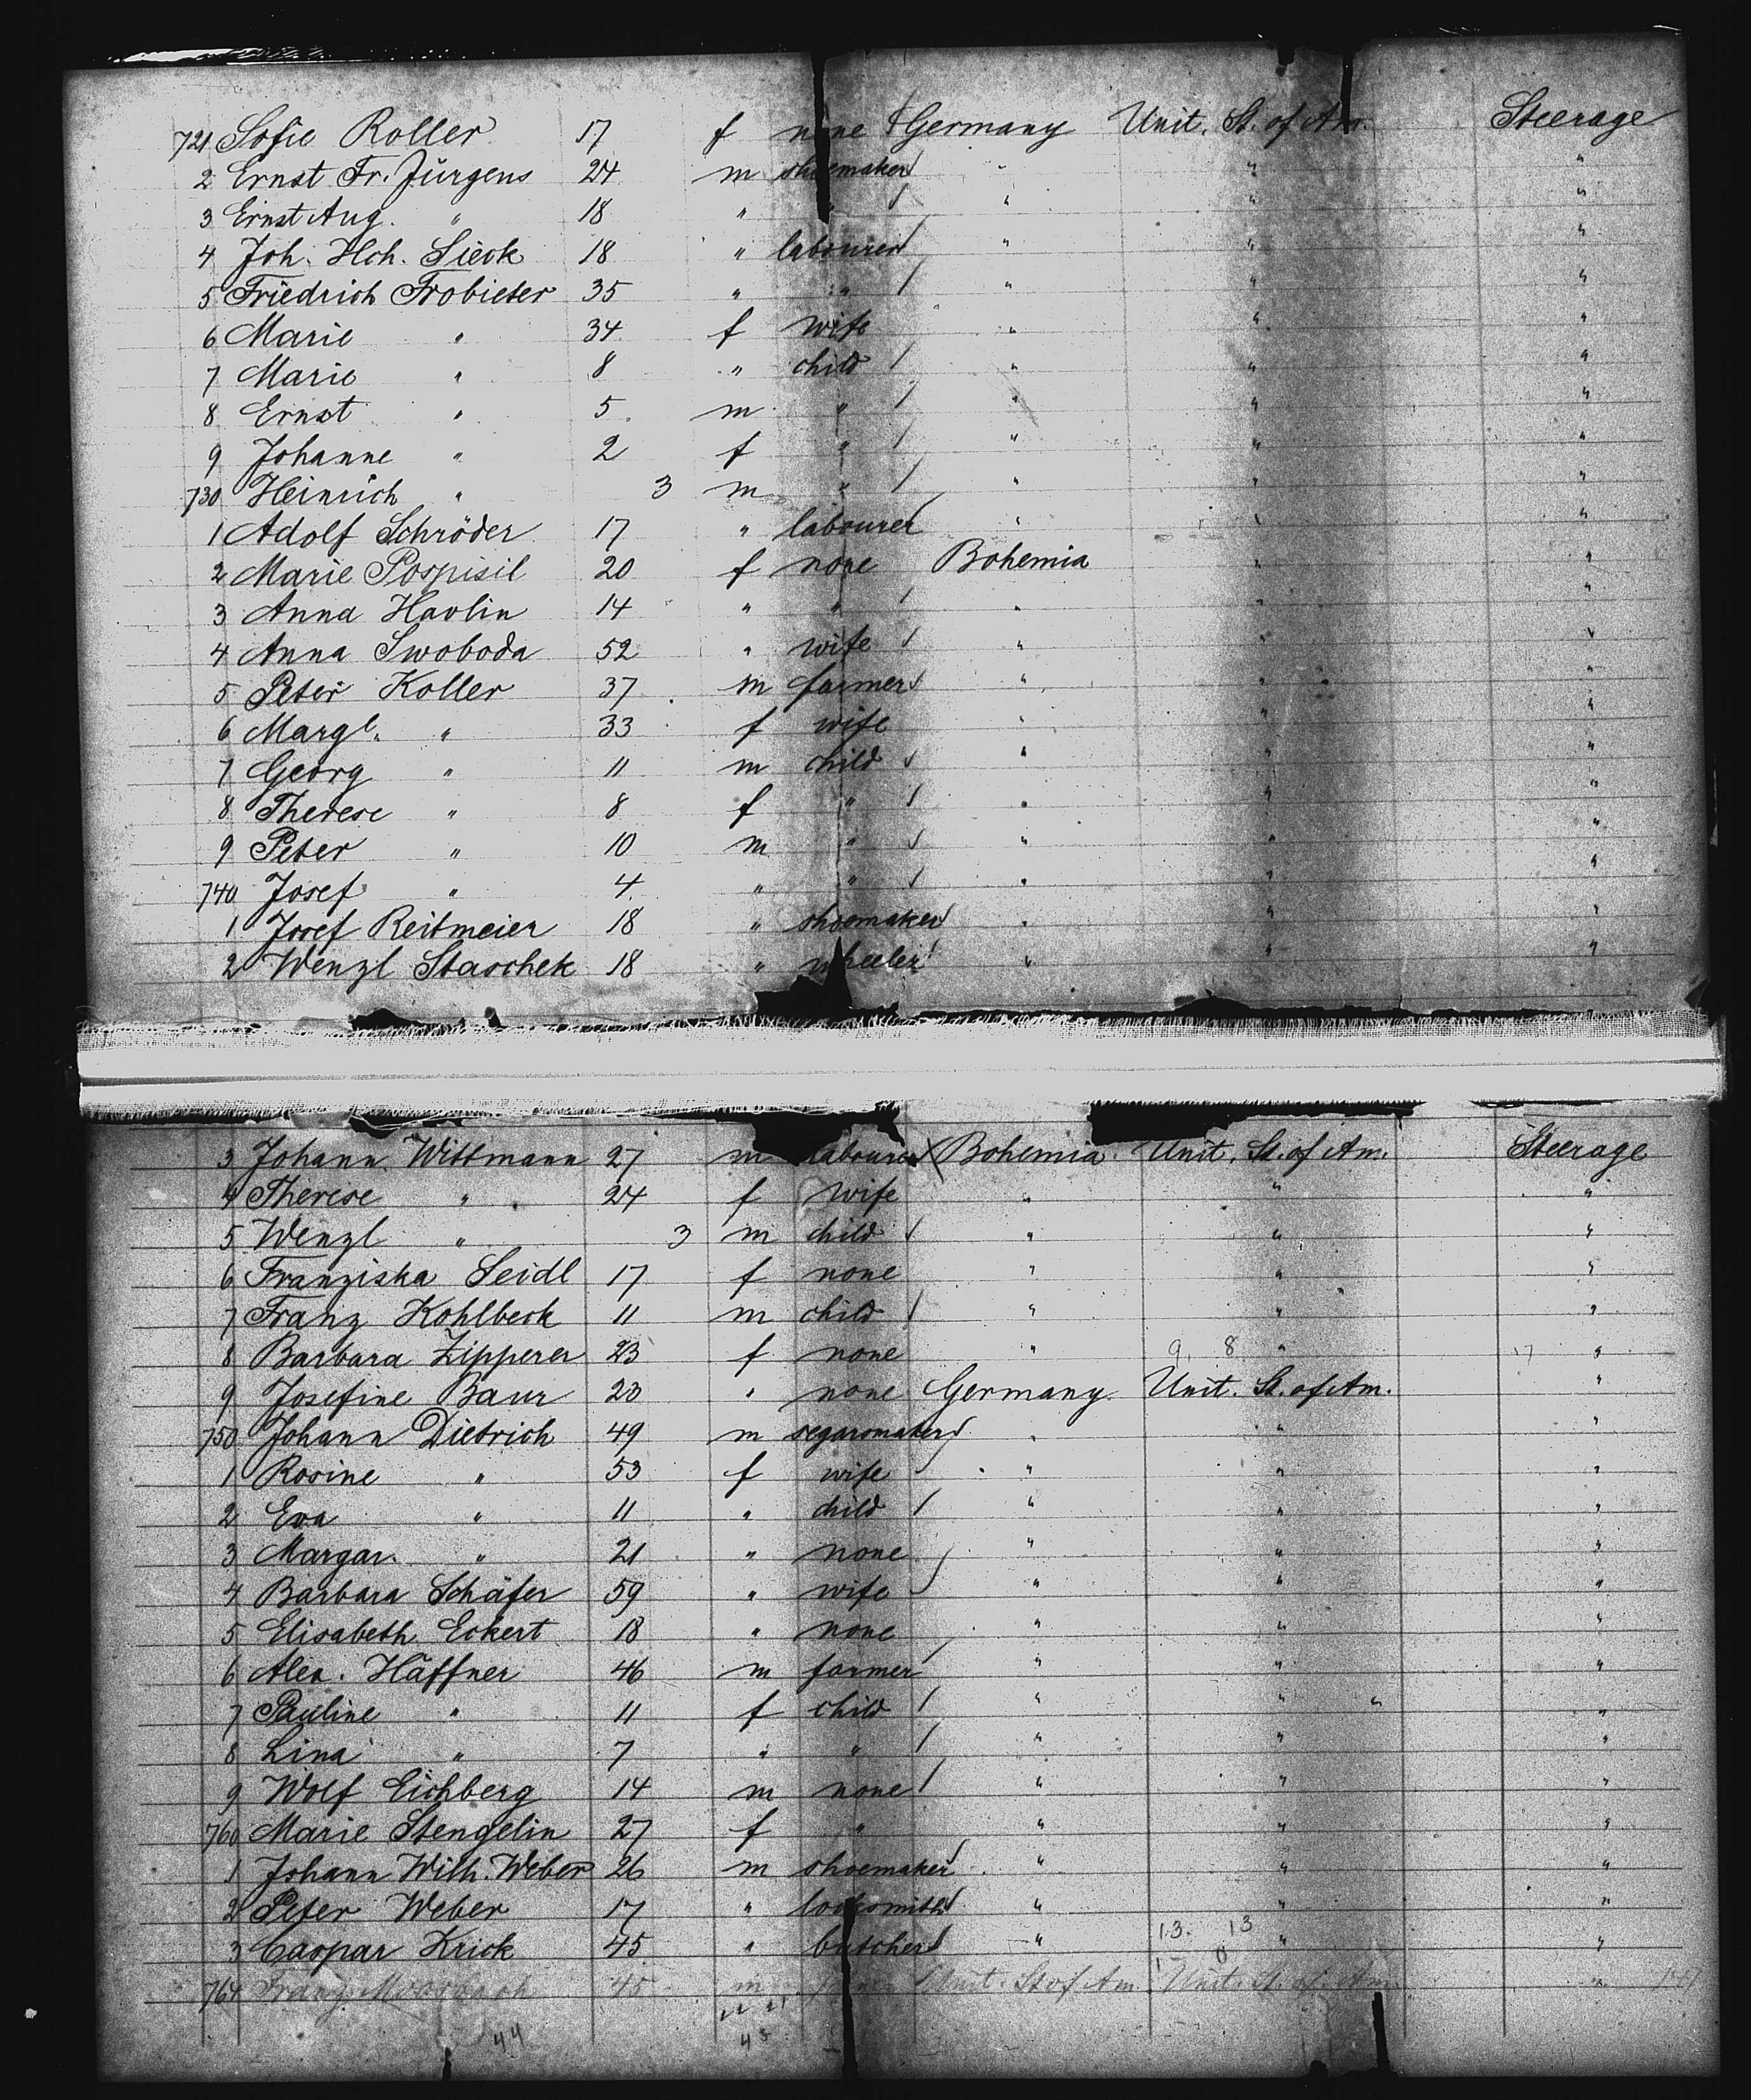 721 Sofie Roller 17 f none Germany Unit. St. of Am. Steerage
2 Ernst Fr. Jürgens 24 m shoemaker " " "
3 Ernst Aug. " 18 " " " " "
4 Joh. Hch. Sieck 18 " labourer " " "
5 Friedrich Frobieter 35 " " " " "
6 Marie " 34 f wife " " "
7 Marie " 8 " child " " "
8 Ernst " 5 m " " " "
9 Johanne " 2 f " " " "
730 Heinrich " 3 m " " " "
1 Adolf Schröder 17 " labourer " " "
2 Marie Pospisil 20 f none Bohemia " "
3 Anna Havlin 14 " " " " "
4 Anna Swoboda 52 " wife " " "
5 Peter Koller 37 m farmer " " "
6 Margt. " 33 f wife " " "
7 Georg " 11 m child " " "
8 Therese " 8 f " " " "
9 Peter " 10 m " " " "
740 Josef " 4 " " " " "
1 Josef Reitmeier 18 " shoemaker " " "
2 Wenzl Staschek 18 " wheeler " " "
3 Johann Wittmann 27 m labourer Bohemia Unit. St. of Am. Steerage
4 Therese " 24 f wife " " "
5 Wenzl " 3 m child " " "
6 Franziska Seidl 17 f none " " "
7 Franz Kohlbeck 11 m child " " "
8 Barbara Zipperer 23 f none " 9 8 " 17 "
9 Josefine Baur 20 " none Germany Unit. St. of Am. "
750 Johann Dietrich 49 m segarmaker " " "
1 Rosine " 53 f wife " " "
2 Eva " 11 " child " " "
3 Margar. " 21 " none " " "
4 Barbara Schäfer 59 " wife " " "
5 Elisabeth Eckert 18 " none " " "
6 Alex. Häffner 46 m farmer " " "
7 Pauline " 11 f child " " "
8 Lina " 7 " " " " "
9 Wolf Eichberg 14 m none " " "
760 Marie Stengelin 27 f " " " "
1 Johann Wilh. Weber 26 m shoemaker " " "
2 Peter Weber 17 " locksmith " " "
3 Caspar Krick 45 " butcher " 13 13 " "
764 Franz 45 m Unit. St. of Am. Unit. St. of Am. "
44 43